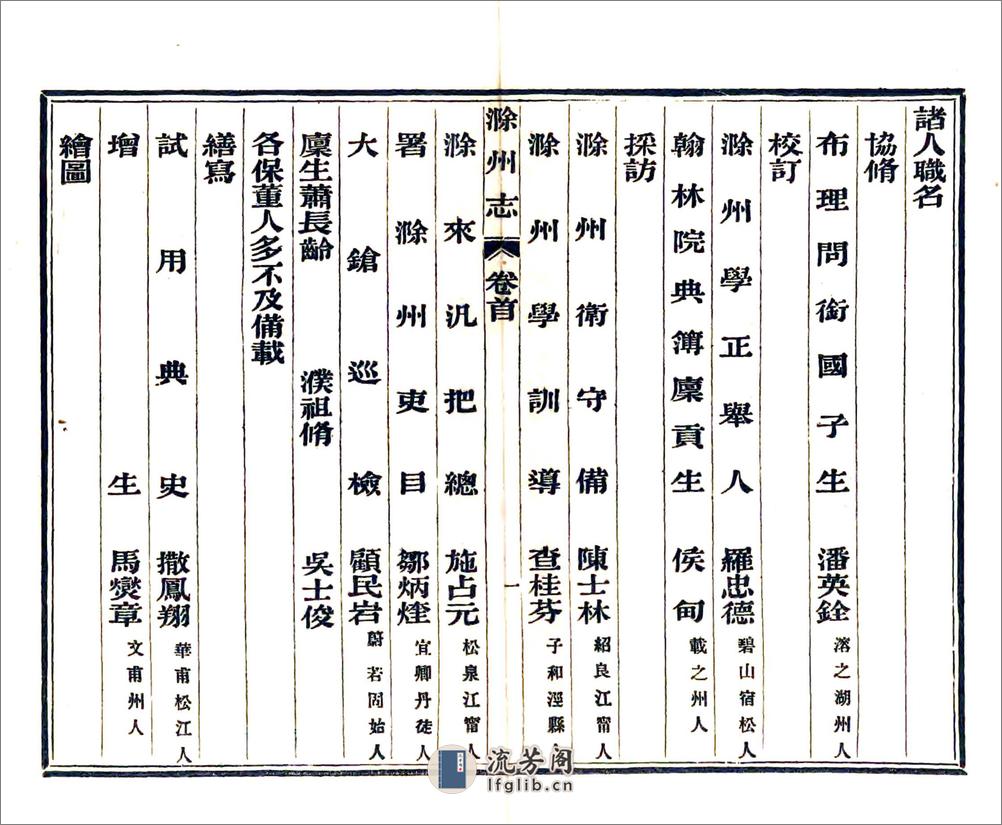 諸人職名
協脩
布理問銜國子生 潘英銓 溶之湖州人
校訂
滁州學正舉人 羅忠德 碧山宿松人
翰林院典簿廩貢生 侯甸 載之州人
採訪
滁州衛守備 陳士林 紹良江甯人
滁州學訓導 查桂芬 子和涇縣人
滁州志 卷首 一
滁來汛把總 施占元 松泉江甯人
署滁州吏目 鄒炳煃 宜卿丹徒人
大鎗巡檢 顧民岩 蔚若固始人
廩生蕭長齡 濮祖脩 吳士俊
各保董人多不及備載
繕寫
試用典史 撒鳳翔 華甫松江人
增生 馬爕章 文甫州人
繪圖
流芳阁
lfglib.cn